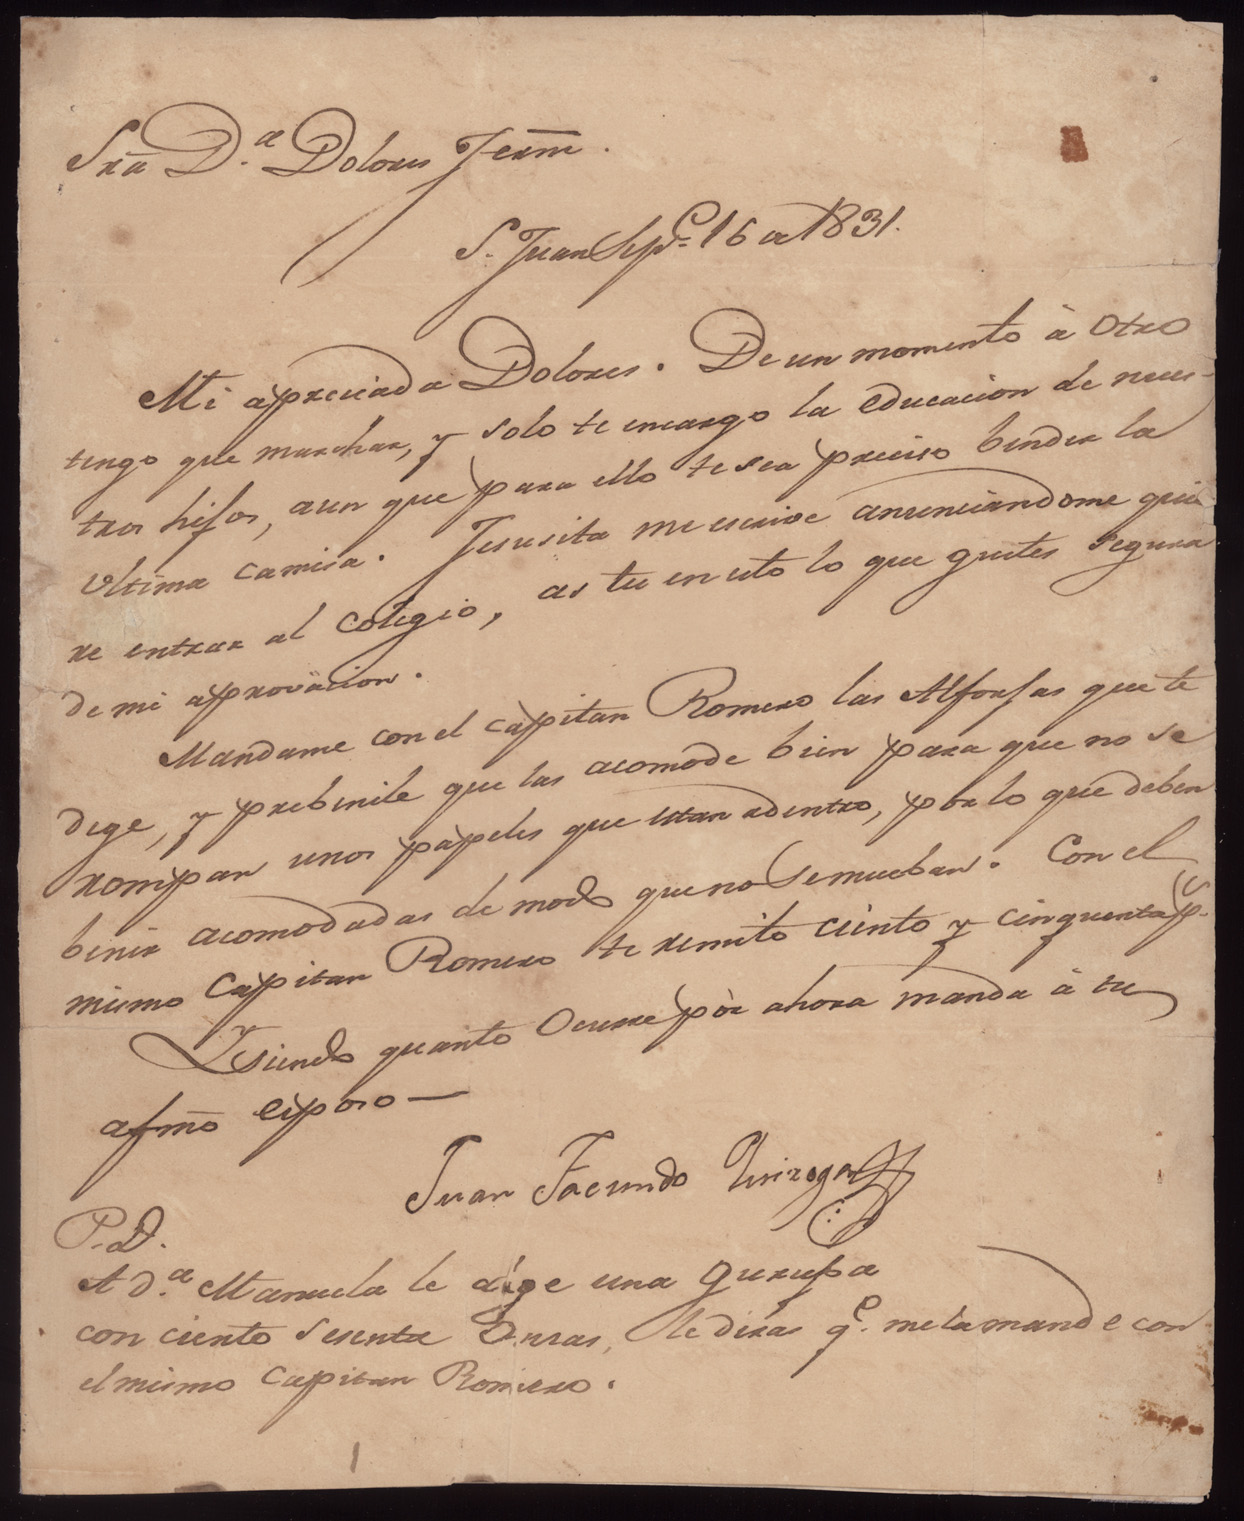 Sra D.a Dolores Fernz.
S. Juan Sepe. 16 de 1831.
Mi apreciada Dolores. De un momento à otro
tengo que marchar, y solo te encargo la educacion de nues-
tros hifos, aun que para ello te sea preciso bender la
ultima camisa. Jesusita me escrive anunciandome quie
re entrar al colegio, as tu en esto lo que gustes segura
de mi aprovacion.
Mandame con el capitan Romero las Alforjas que te
dege, y prebenile que las acomode bien para que no se
rompan unos papeles que estan adentro, por lo que deben
benir acomodadas de modo que no se mueban. Con el
mismo Capitan Romero te remito ciento y cinquenta ps.
Y siendo quanto Ocurre pòr ahora manda à tu
afmo esposo—
Juan Facundo Quiroga
P. D.
A d.a Manuela le dige una gurupa
con ciento sesenta Onsas, le diras qe. me la mande con
el mismo Capitan Romero.
1